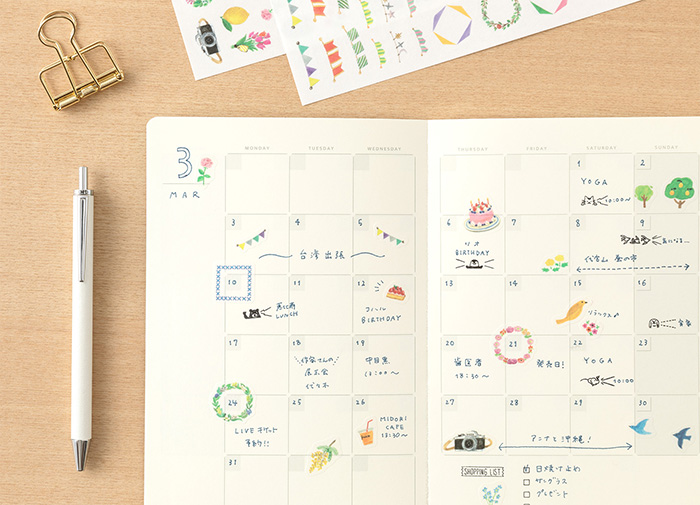 3
MAR
MONDAY TUESDAY WEDNESDAY THURSDAY FRIDAY SATURDAY SUNDAY
1 2
YOGA
10:00~
3 4 5 6 7 8 9
台湾出張
リオ
BIRTHDAY
代官山 蚤の市
10 11 12 13 14 15 16
LUNCH
BIRTHDAY
リラックス
17 18 19 20 21 22 23
作家さんの
展示会
代々木
中目黒
13:00~
歯医者
18:30~
発売日!
YOGA
10:00
24 25 26 27 28 29 30
LIVE チケット
予約!!
MIDORI
CAFE
13:30~
アニナと沖縄!
31
SHOPPING LIST
日焼け止め
サングラス
プレゼント